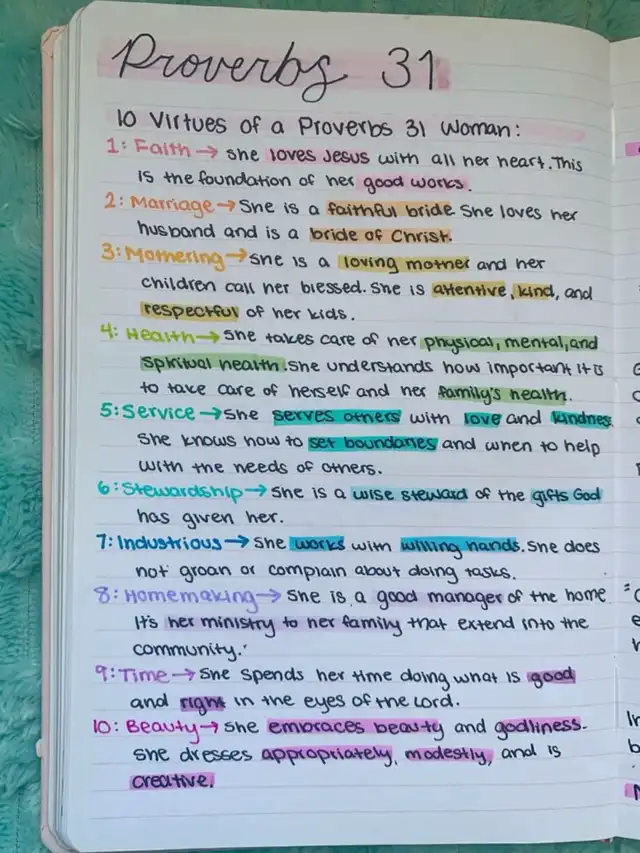 Proverbs 31
10 Virtues of a Proverbs 31 Woman:
1: Faith → she loves Jesus with all her heart. This
is the foundation of her good works.
2: Marriage → She is a faithful bride. She loves her
husband and is a bride of Christ.
3: Mothering → she is a loving mother and her
children call her blessed. She is attentive, kind, and
respectful of her kids.
4: Health → She takes care of her physical, mental, and
spiritual health. She understands how important it is
to take care of herself and her family's health.
5: Service → She serves others with love and kindness.
She knows how to set boundaries and when to help
with the needs of others.
6: Stewardship → She is a wise steward of the gifts God
has given her.
7: Industrious → She works with willing hands. She does
not groan or complain about doing tasks.
8: Homemaking → She is a good manager of the home
It's her ministry to her family that extend into the
community.
9: Time → She spends her time doing what is good
and right in the eyes of the Lord.
10: Beauty → She embraces beauty and godliness.
She dresses appropriately, modestly, and is
creative.